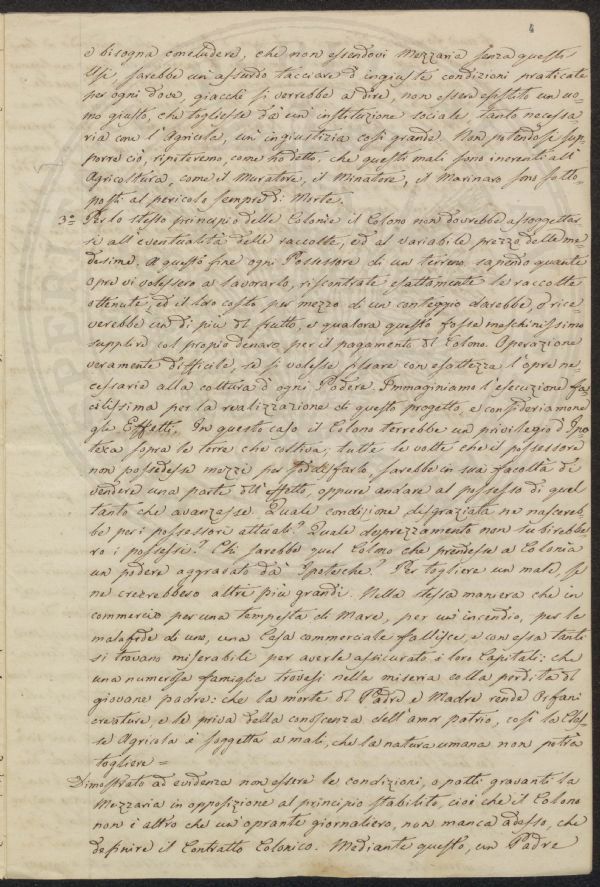 4
e bisogna concludere, che non essendovi Mezzaria senza questi
Usi, sarebbe un'assurdo tacciare d'ingiuste condizioni praticate
per ogni dove, giacchè si verrebbe a dire, non essere esistito un uo-
mo giusto, che togliesse da un'instituzione sociale, tanto necessa-
ria com'è l'Agricola, un'ingiustizia così grande. Non potendosi sup-
porre ciò, ripeteremo, come ho detto, che questi mali sono inerenti all'
Agricoltura, come il Muratore, il Minatore, il Marinaro sono sotto-
posti al pericolo sempre di Morte.
3º Per lo stesso principio delle Colonie il Colono non dovrebbe assoggettar-
si all'eventualità delle raccolte, ed al variabile prezzo delle me-
desime. A questo fine ogni Possessore di un terreno sapendo quante
opre vi volessero a lavorarlo, riscontrate esattamente le raccolte
ottenute, ed il loro costo per mezzo di un conteggio darebbe, o rice-
verebbe un di più del frutto, e qualora questo fosse meschinissimo
supplire col proprio denaro, per il pagamento del Colono. Operazione
veramente difficile, se si volesse fissare con esattezza l'opre ne-
cessarie alla coltura d'ogni Podere. Immaginiamo l'esecuzione fa-
cilissima per la realizzazione di questo progetto, e consideriamone
gli Effetti. In questo caso il Colono terrebbe un privilegio d'Ipo-
teca sopra le terre che coltiva; tutte le volte che il possessore
non possedesse mezzi per sodisfarlo, sarebbe in sua facoltà di
vendere una parte dell'effetto, oppure andare al possesso di quel
tanto che avanzasse. Quale condizione disgraziata ne nascereb-
be per i possessori attuali? Quale disprezzamento non subirebbe-
ro i possessi? Chi sarebbe quel Colono che prendesse a Colonia
un podere aggravato da Ipoteche? Per togliere un male, se
ne crerebbero altri più grandi. Nella stessa maniera che in
commercio per una tempesta di Mare, per un'incendio, per la
malafede di uno, una Casa commerciale fallisce, e con essa tanti
si trovano miserabili per averle assicurato i loro Capitali: che
una numerosa famiglia trovasi nella miseria colla perdita del
giovane padre: che la morte del Padre e Madre rende Orfani
creature, e le priva della conoscenza dell'amor patrio, così la Clas-
se Agricola è soggetta a mali, che la natura umana non potrà
togliere =
Dimostrato ad evidenza non essere le condizioni, o patti gravanti la
Mezzaria in opposizione al principio stabilito, cioè che il Colono
non è altro che un'oprante giornaliero, non manca adesso, che
definire il Contratto Colonico. Mediante questo, un Padre